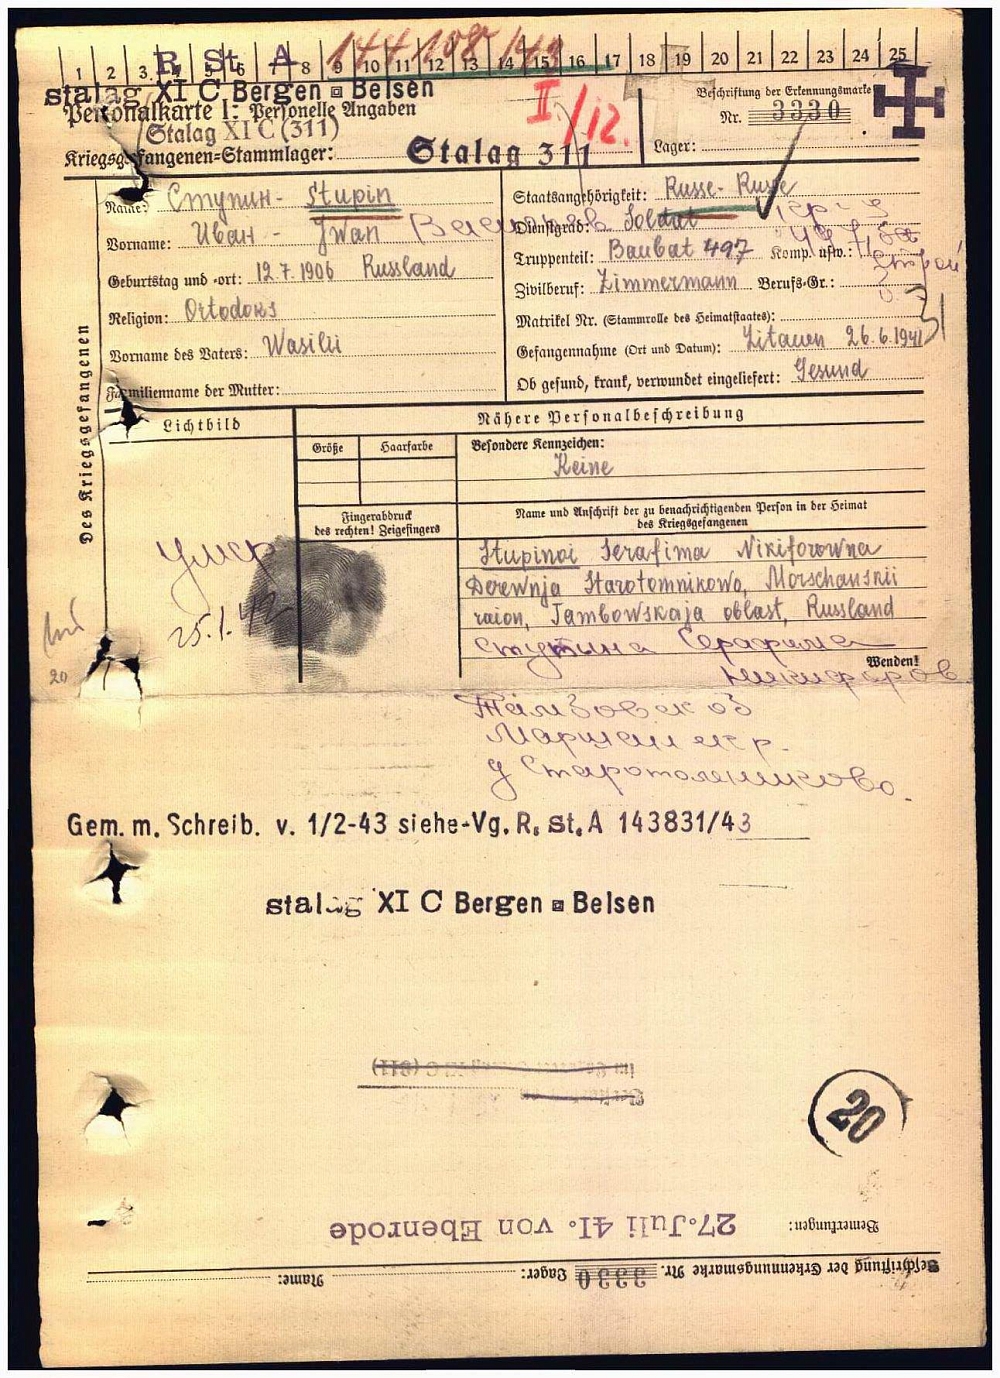 1 2 3 4 5 6 7 8 9 10 11 12 13 14 15 16 17 18 19 20 21 22 23 24 25
R St A
144 108/43
Stalag XI C Bergen Belsen
Personalkarte I: Personelle Angaben
Stalag XI C (311)
II/12.
Beschriftung der Erkennungsmarke
Nr. 3330
Kriegsgefangenen=Stammlager: Stalag 311
Lager:
Des Kriegsgefangenen
Name: Ступин - Stupin
Vorname: Иван - Jwan
Geburtstag und =ort: 12.7.1906 Russland
Religion: Ortodoks
Vorname des Vaters: Wasilii
Familienname der Mutter:
Staatsangehörigkeit: Russe - Russe
Dienstgrad: Soldat
Truppenteil: Baubat 497 Komp. usw.:
Zivilberuf: Zimmermann Berufs-Gr.:
Matrikel Nr. (Stammrolle des Heimatstaates):
Gefangennahme (Ort und Datum): Litauen 26.6.1941
Ob gesund, krank, verwundet eingeliefert: Gesund
Lichtbild
Nähere Personalbeschreibung
Größe
Haarfarbe
Besondere Kennzeichen:
Keine
Fingerabdruck
des rechten! Zeigefingers
Name und Anschrift der zu benachrichtigenden Person in der Heimat
des Kriegsgefangenen
Stupinoi Serafima Nikiforowna
Derewnja Starotomnikowo, Morschanskii
raion, Tambowskaja oblast, Russland
умер
25.1.42
20
Ступина Серафима
Wenden!
Никифоров
Тамбовск об
Маршанск р.
д Старотомниково.
Gem. m. Schreib. v. 1/2-43 siehe-Vg. R. St. A 143831/43
Stalag XI C Bergen Belsen
20
Bemerkungen: 27. Juli 41. von Ebenrode
Beschriftung der Erkennungsmarke Nr. 3330 Lager: Name: